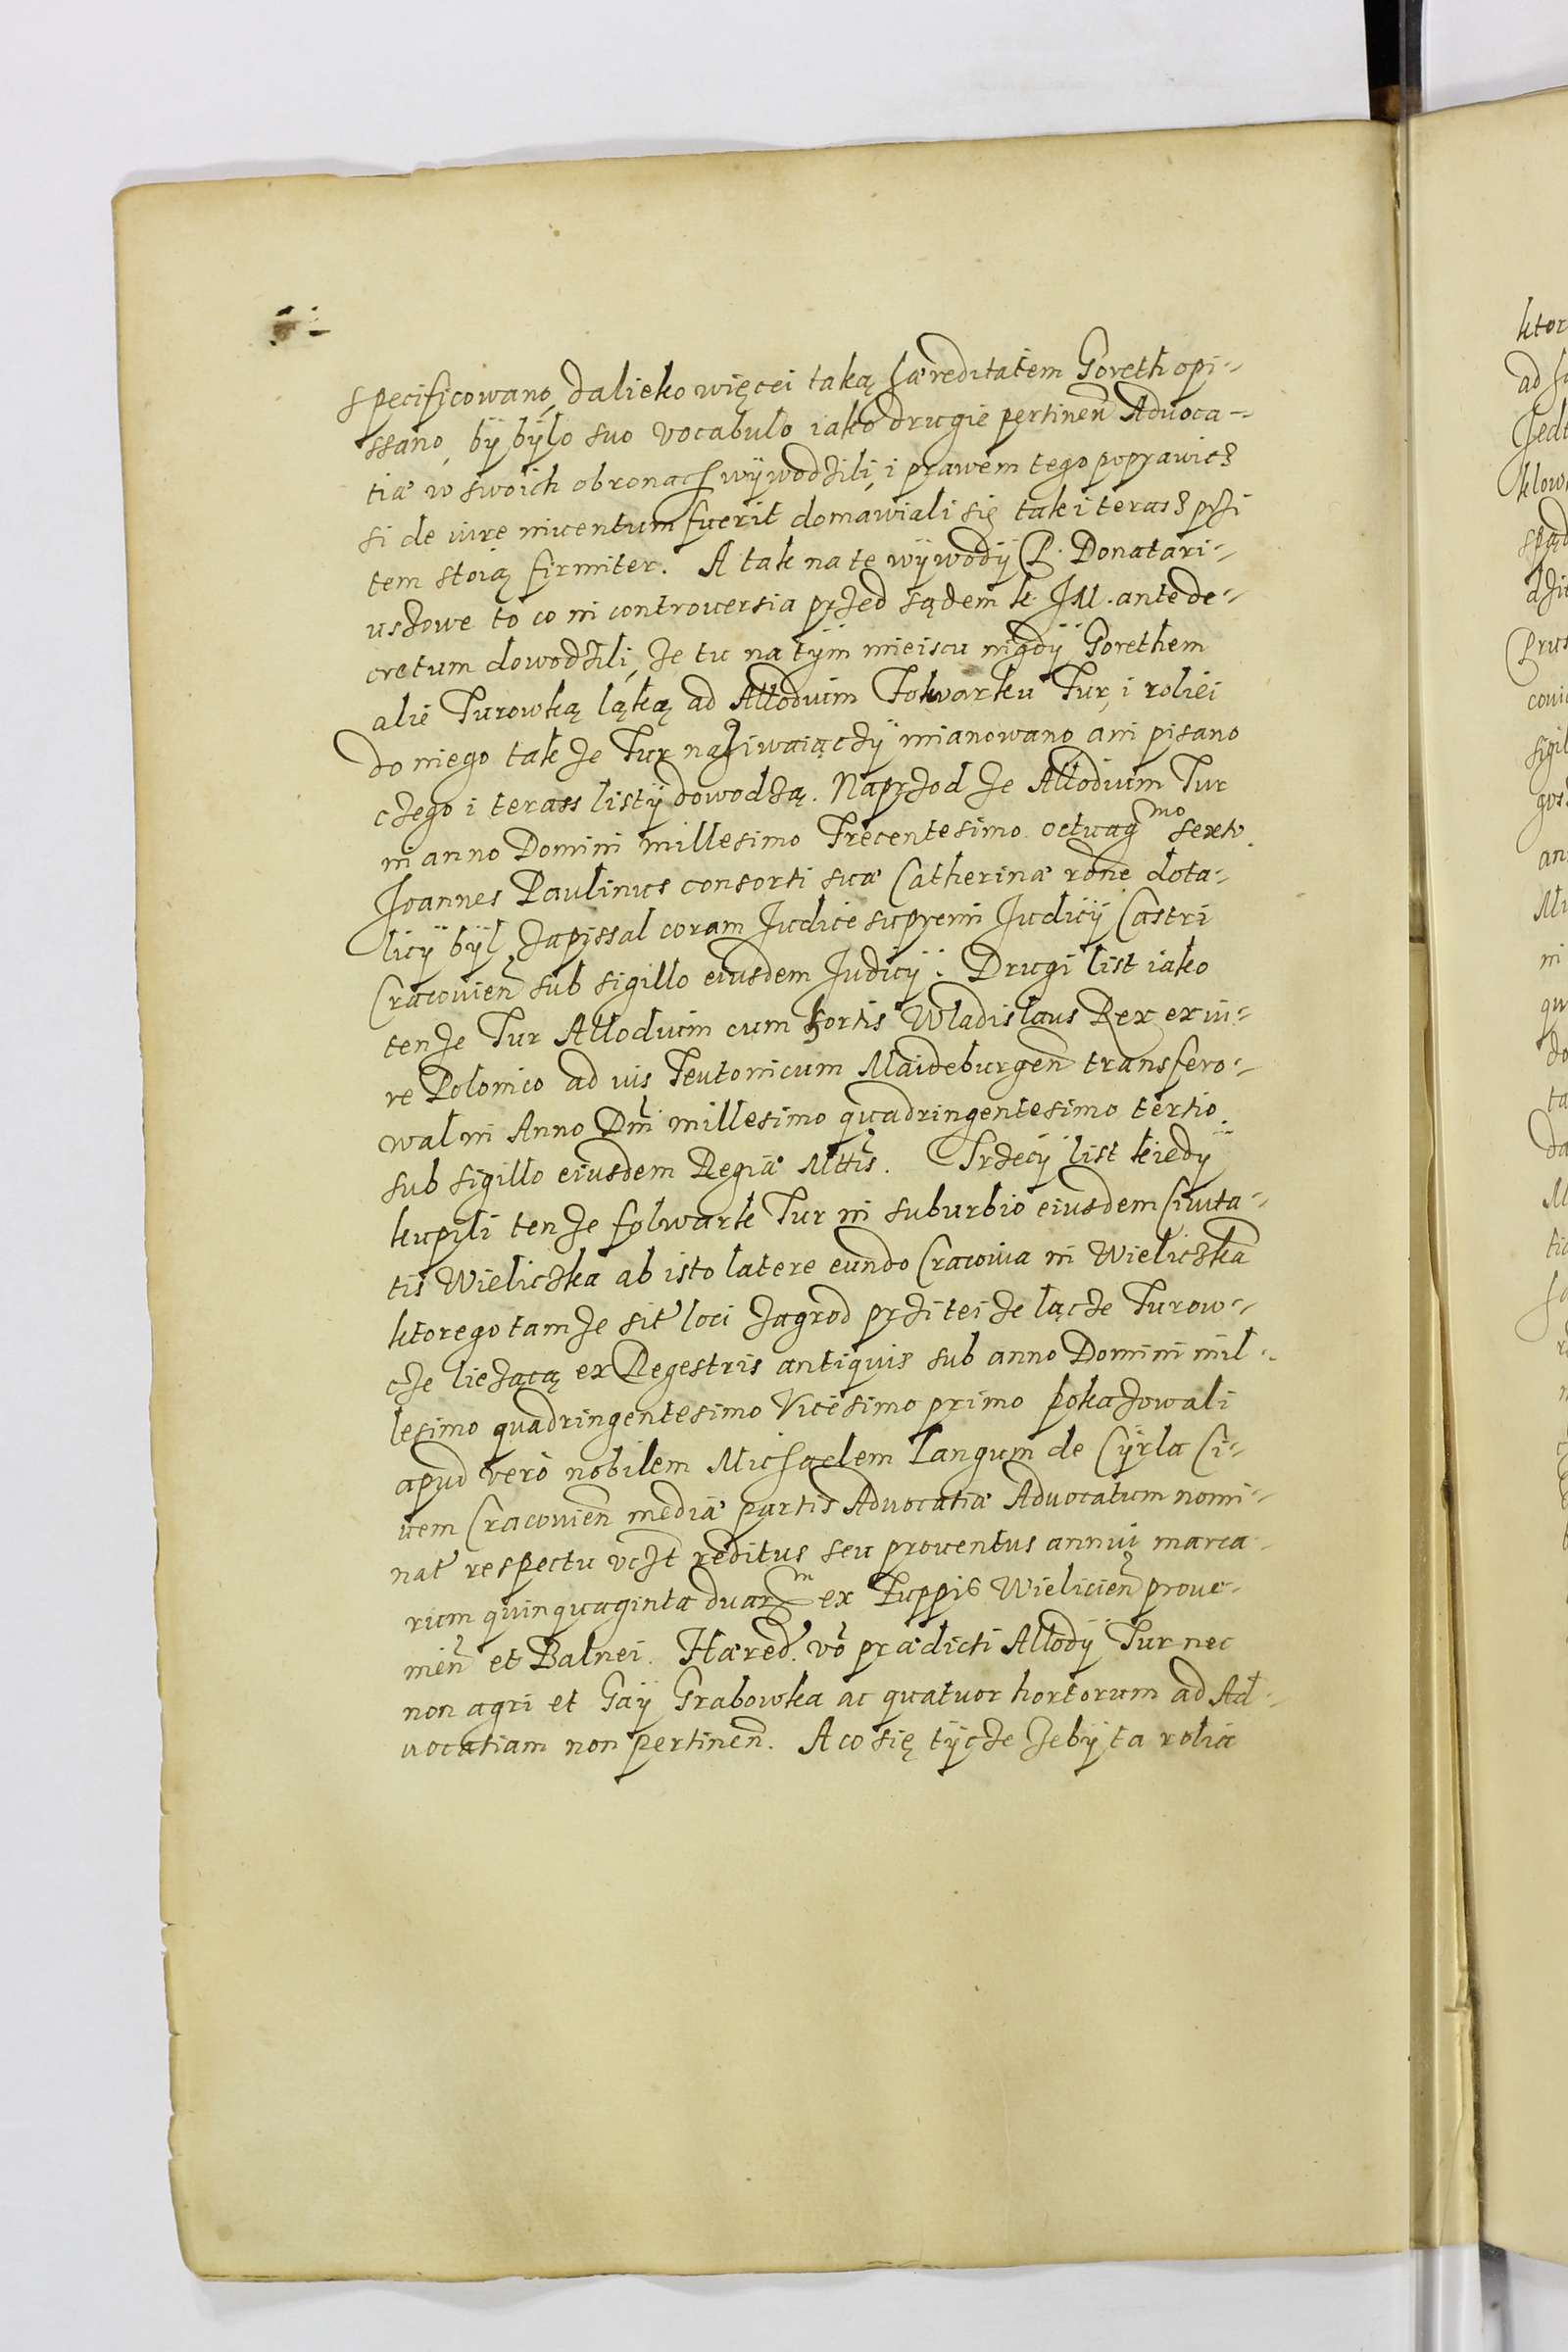 specificowano, dalieko więcei taką hæreditatem Goreth opi-
ssano, bÿ bÿlo suo vocabulo iako drugie pertineñ Aduoca-
tiæ w swoich obronach wÿwodzili, i prawem tego poprawic?
si de iure inuentum fuerit domawiali się tak i teras? przi
tem stoią firmiter. A tak na te wÿwodÿ P. Donatari-
uszowe to co in controuersia przed sądem k JM. ante de-
cretum dowodzili, że tu na tÿm mieiscu nigdÿ Gorethem
alie Turowką ląką ad Allodium Folwarku Tur, i roliei
do niego takze Tur naziwaiączÿ mianowano ani pisano
czego i terass listÿ dowodzą. Naprzod ze Allodium Tur
in anno Domini millesimo Trecentesimo octuag mo sexto.
Joannes Paulinus consorti suæ Catherinæ rõne dota-
licÿ bÿl zapissal coram Judice supremi Judicÿ Castri
Cracouieñ sub sigillo eiusdem Judicÿ. Drugi list iako
tenze Tur Allodium cum hortis Wladislaus Rex ex iu-
re Polonico ad ius Teutonicum Maideburgeñ transfero-
wal in Anno Dñi millesimo quadringentesimo tertio.
sub sigillo eiusdem Regiæ Mttis. Trzecÿ list kiedÿ
kupili tenze folwark Tur in suburbio eiusdem Ciuita-
tis Wieliczka ab isto latere eundo Cracouia in Wieliczka
ktorego tamze sit loci zagrod przi teize lącze Turow-
cze liezącą ex Regestris antiquis sub anno Domini mil-
lesimo quadringentesimo Vicesimo primo pokazowali
apud verò nobilem Michaelem Langum de Cÿrla Ci-
uem Cracouieñ mediæ partis Aduocatiæ Aduocatum nomi-
nat respectu vczt reditus seu prouentus annui marca-
rum quinquaginta duarm ex Zuppis Wielicieñ proue-
nieñ et Balnei. Hæred. võ prædicti Allodÿ Tur nec
non agri et Gaÿ Grabowka ac quatuor hortorum ad Ad-
uocatiam non pertineñ. A co się tÿcze zebÿ ta rolia